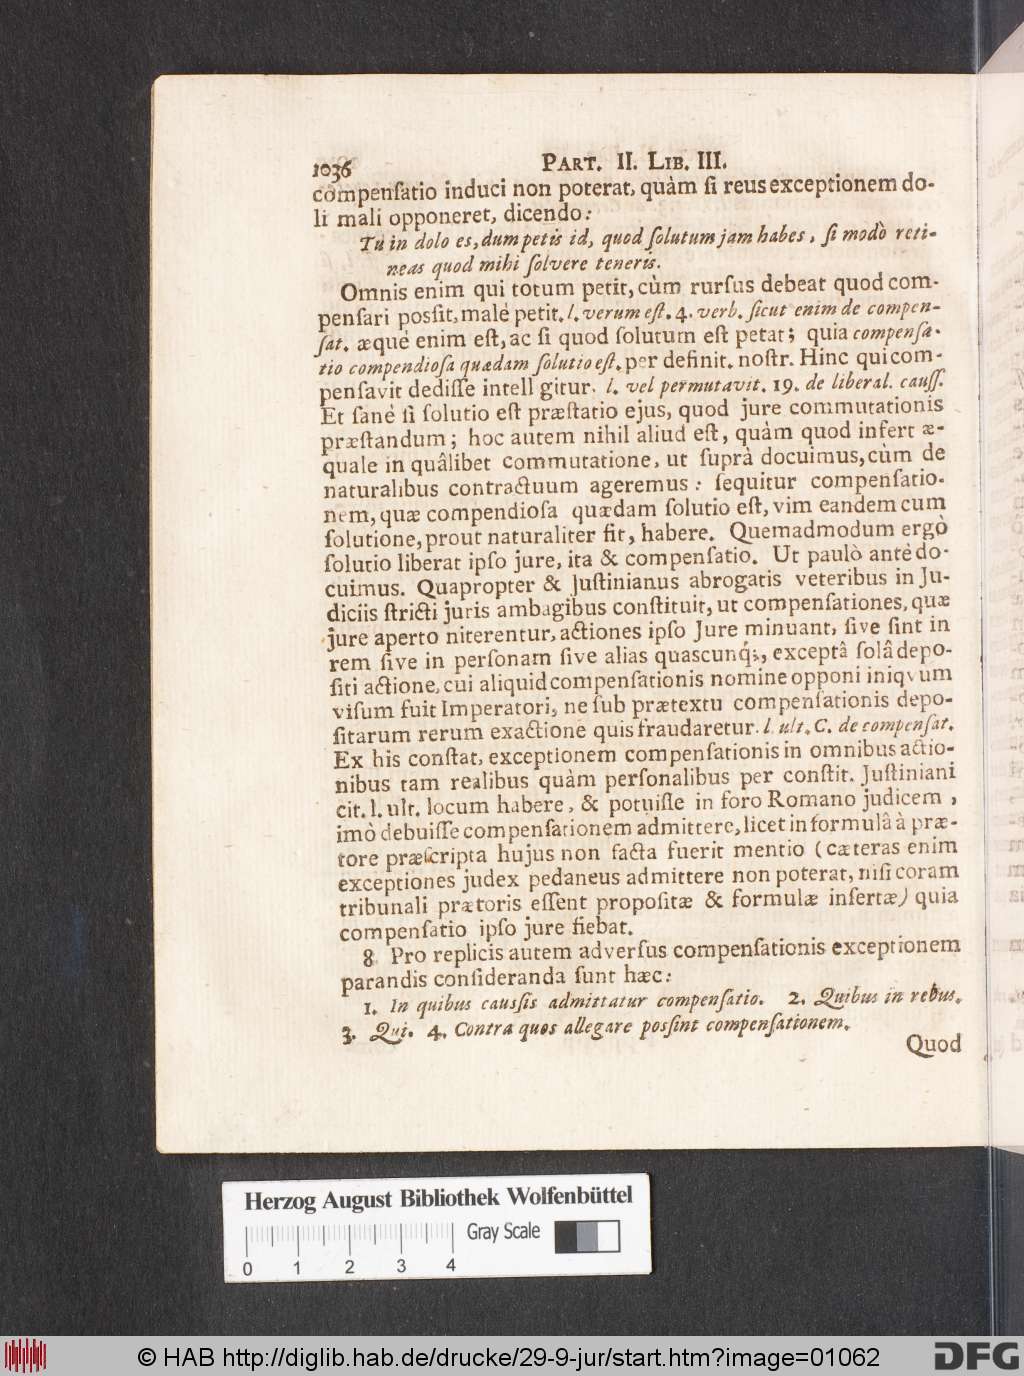 1036 PART. II. LIB. III.
compenſatio induci non poterat, quàm ſi reus exceptionem do-
li mali opponeret, dicendo:
Tu in dolo es, dum petis id, quod ſolutum jam habes, ſi modò reti-
neas quod mihi ſolvere teneris.
Omnis enim qui totum petit, cùm rurſus debeat quod com-
penſari poſſit, malè petit. l. verum eſt. 4. verb. ſicut enim de compen-
ſat. æquè enim eſt, ac ſi quod ſolutum eſt petat; quia compenſa-
tio compendioſa quædam ſolutio eſt. per definit. noſtr. Hinc qui com-
penſavit dediſſe intell gitur. l. vel permutavit. 19. de liberal. cauſſ.
Et ſanè ſi ſolutio eſt præſtatio ejus, quod jure commutationis
præſtandum; hoc autem nihil aliud eſt, quàm quod infert æ-
quale in quâlibet commutatione, ut ſuprà docuimus, cùm de
naturalibus contractuum ageremus: ſequitur compenſatio-
nem, quæ compendioſa quædam ſolutio eſt, vim eandem cum
ſolutione, prout naturaliter fit, habere. Quemadmodum ergò
ſolutio liberat ipſo jure, ita & compenſatio. Ut paulò antè do-
cuimus. Quapropter & Juſtinianus abrogatis veteribus in Ju-
diciis ſtricti juris ambagibus conſtituit, ut compenſationes, quæ
jure aperto niterentur, actiones ipſo Jure minuant, ſive ſint in
rem ſive in perſonam ſive alias quascunq́;, exceptâ ſolâ depo-
ſiti actione, cui aliquid compenſationis nomine opponi iniqvum
viſum fuit Imperatori, ne ſub prætextu compenſationis depo-
ſitarum rerum exactione quis fraudaretur. l. ult. C. de compenſat.
Ex his conſtat, exceptionem compenſationis in omnibus actio-
nibus tam realibus quàm perſonalibus per conſtit. Juſtiniani
cit. l. ult. locum habere, & potuiſſe in foro Romano judicem,
imò debuiſſe compenſationem admittere, licet in formulâ à præ-
tore præſcripta hujus non facta fuerit mentio (cæteras enim
exceptiones judex pedaneus admittere non poterat, niſi coram
tribunali prætoris eſſent propoſitæ & formulæ inſertæ) quia
compenſatio ipſo jure fiebat.
8. Pro replicis autem adverſus compenſationis exceptionem
parandis conſideranda ſunt hæc:
1. In quibus cauſſis admittatur compenſatio. 2. Quibus in rebus.
3. Qui. 4. Contra quos allegare poſſint compenſationem.
Quod
Herzog August Bibliothek Wolfenbüttel
Gray Scale
0 1 2 3 4
© HAB http://diglib.hab.de/drucke/29-9-jur/start.htm?image=01062
DFG